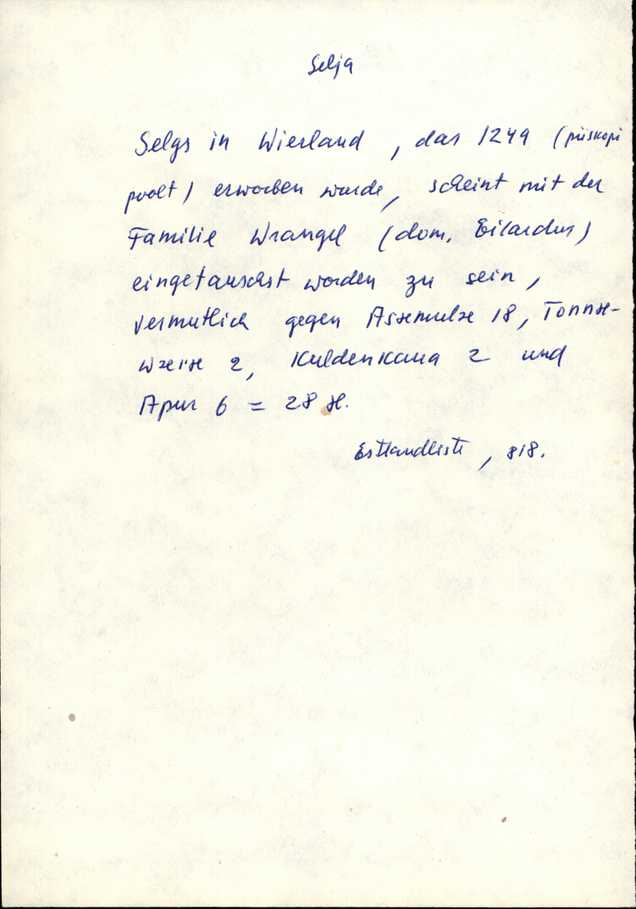 Selja
Selgs in Wierland, das 1249 (piiskopi
poolt) erworben wurde, scheint mit der
Familie Wrangel (dom. Eilardus)
eingetauscht worden zu sein,
vermutlich gegen Assemulze 18, Tonnse-
wzerze 2, Kuldenkaua 2 und
Apur 6 = 28 H.
Estlandliste, 818.